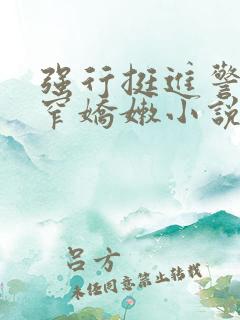 强行挺进警
窄嬌嫩小説
吕方
未经同意禁止转载